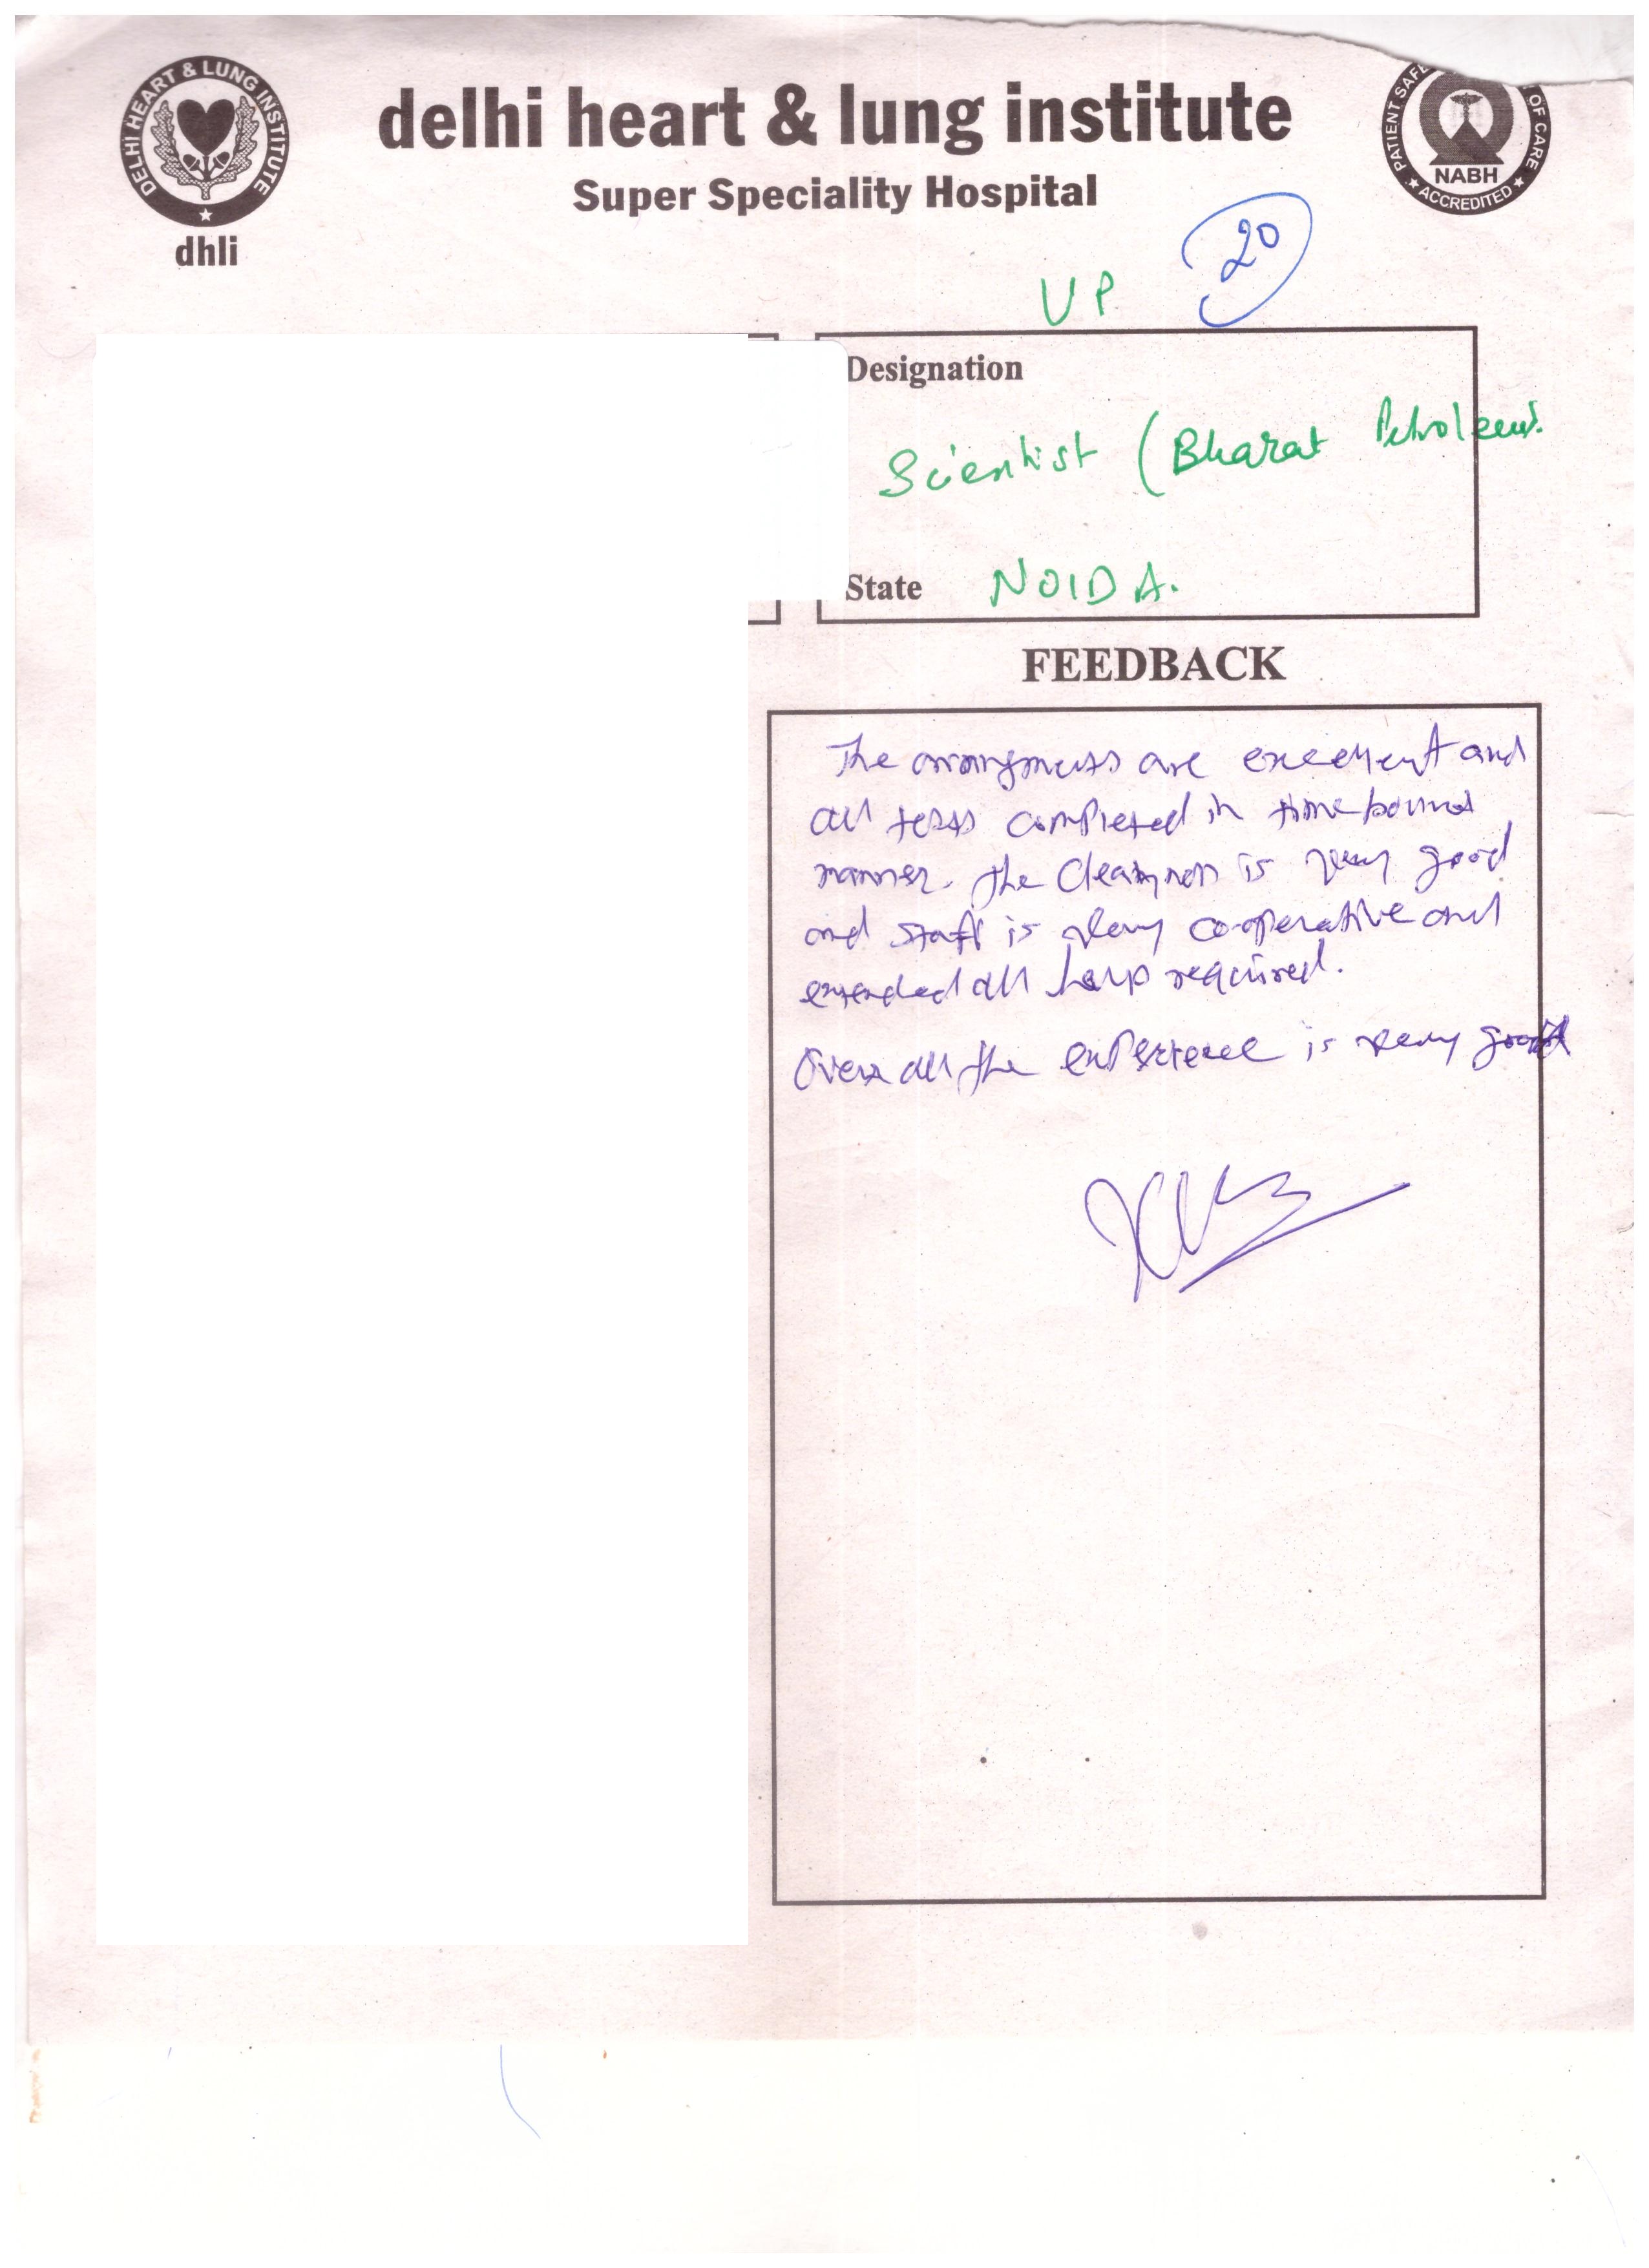 DELHI HEART & LUNG INSTITUTE
dhli
delhi heart & lung institute
Super Speciality Hospital
PATIENT SAFE OF CARE
NABH
ACCREDITED
UP
20
Designation
Scientist (Bharat Petroleum.
State NOIDA.
FEEDBACK
The arrangments are excellent and
all tests completed in time bound
manner. The Cleanness is very good
and staff is very co-operative and
extended all help required.
Over all the experience is very good